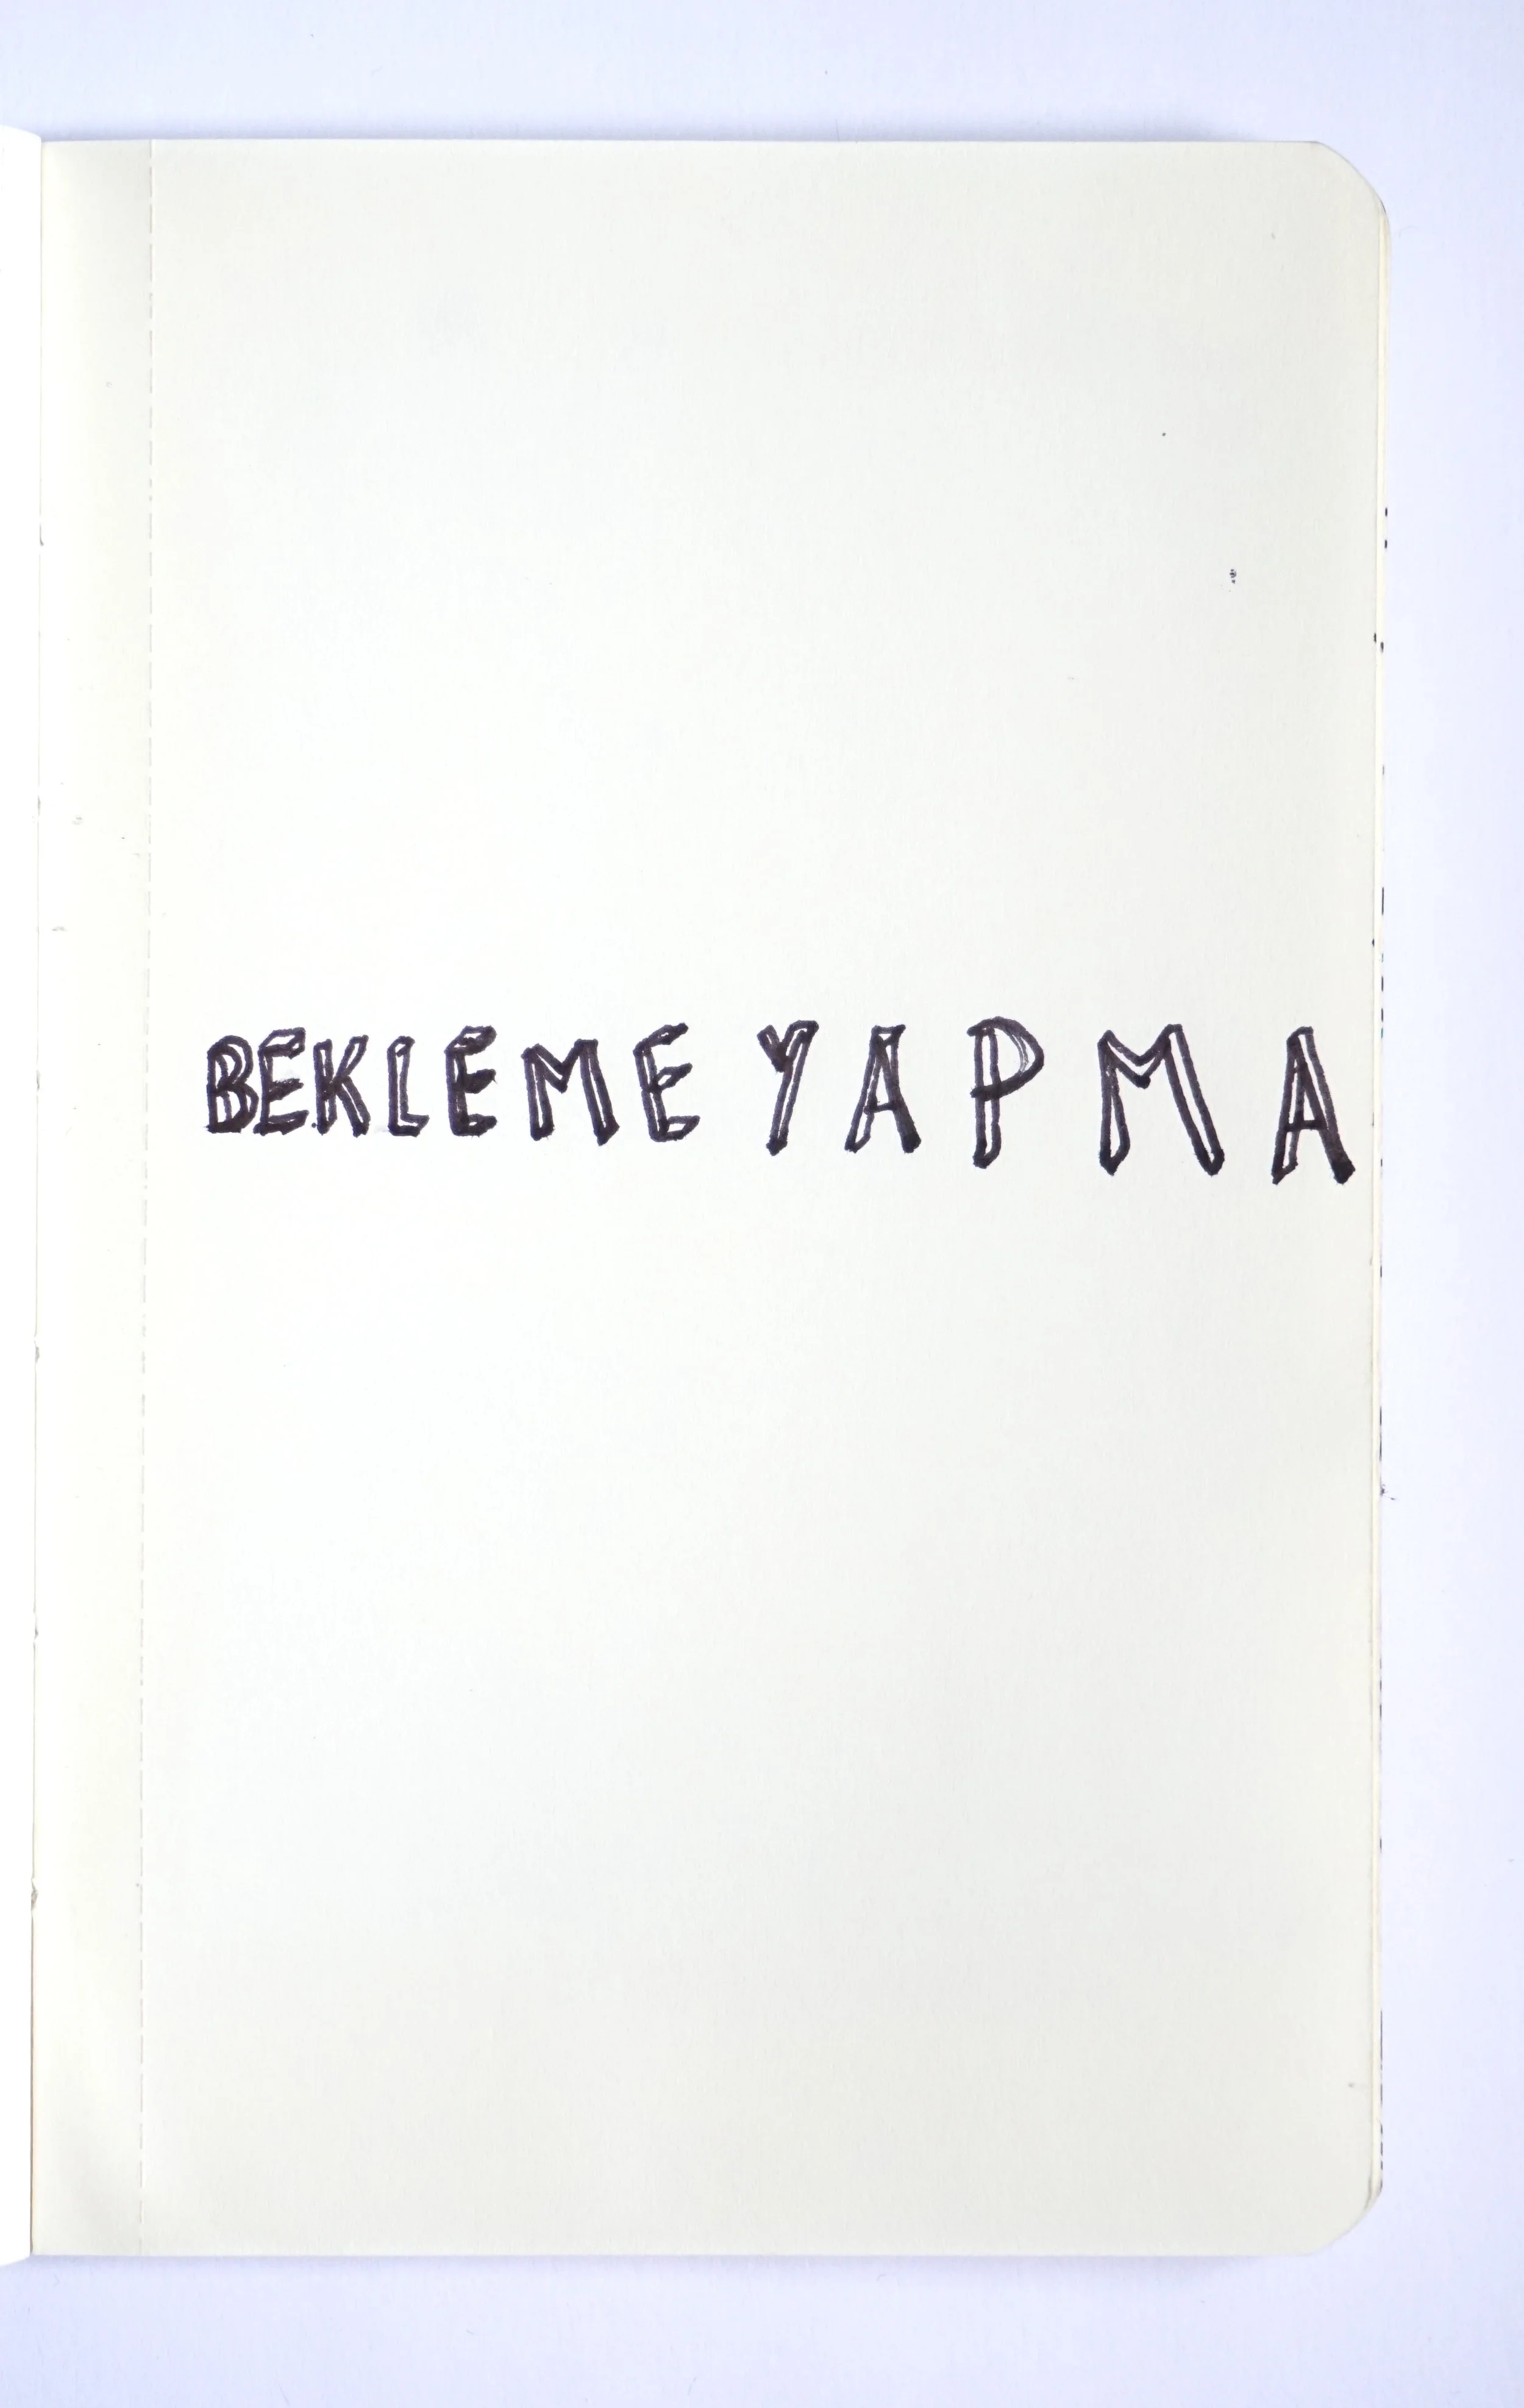 BEKLEME YAPMA